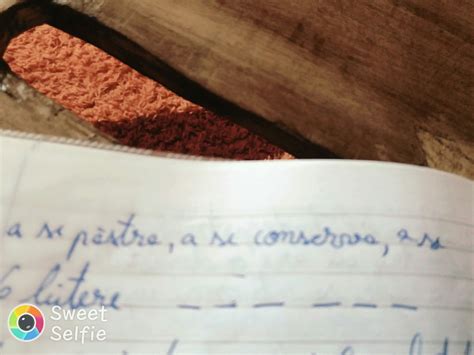 a se păstra, a se conserva, a se
6 litere _ _ _ _ _ _
Sweet
Selfie